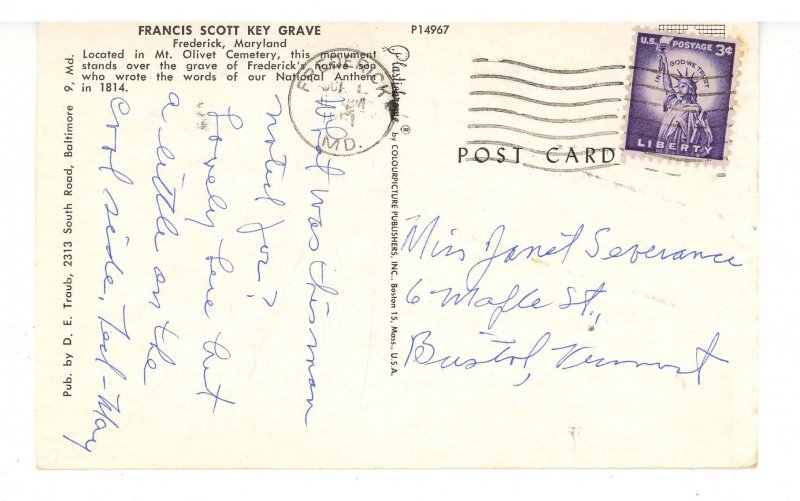 FRANCIS SCOTT KEY GRAVE
Frederick, Maryland
Located in Mt. Olivet Cemetery, this monument
stands over the grave of Frederick's native son
who wrote the words of our National Anthem
in 1814.
P14967
Pub. by D. E. Traub, 2313 South Road, Baltimore 9, Md.
Plastichrome ® by COLOURPICTURE PUBLISHERS, INC., Boston 15, Mass., U.S.A.
FREDERICK
MD.
U.S. POSTAGE 3¢
IN GOD WE TRUST
LIBERTY
POST CARD
What was this man
noted for?
Lovely here but
a little on the
cool side. Ted-May
Miss Janet Severance
6 Maple St.,
Bristol, Vermont